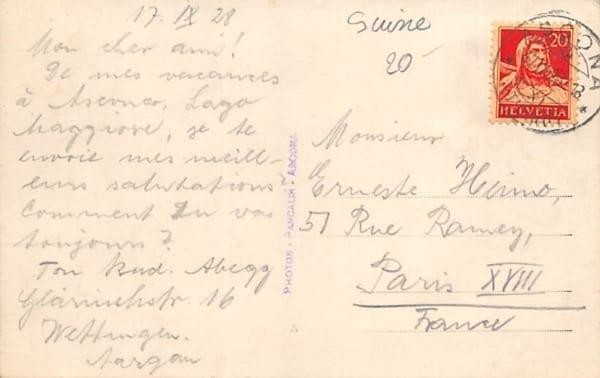 17. IX 28
Mon cher ami!
De mes vacances
à Ascona, Lago
Maggiore, je te
envoie mes meill-
eurs salutations
Comment Du vas
toujours?
Ton Rud. Abegg
Glärnischstr. 16
Wettingen.
Aargau
PHOTOS - PANCALDI - ASCONA
Suisse
20
20
HELVETIA
ASCONA
Monsieur
Erneste Heimo,
51 Rue Ramey,
Paris XVIII
France